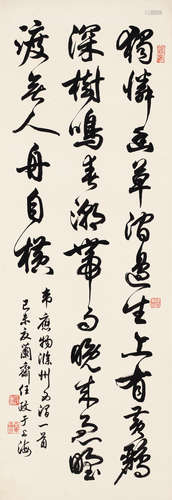 獨憐幽草澗邊生上有黄鸝
深樹鳴春潮帶雨晚來急野
渡無人舟自橫
韋應物滁州西澗一首
己未夏蘭齋任政于上海